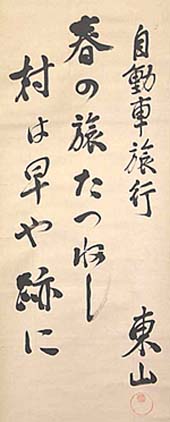 自動車旅行
東山
春の旅たつねし
村は早や跡に